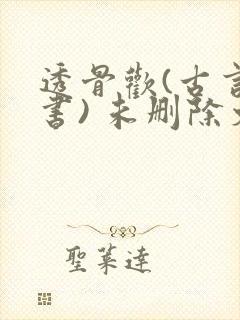 透骨歡(古言
書)未刪除
聖萊達